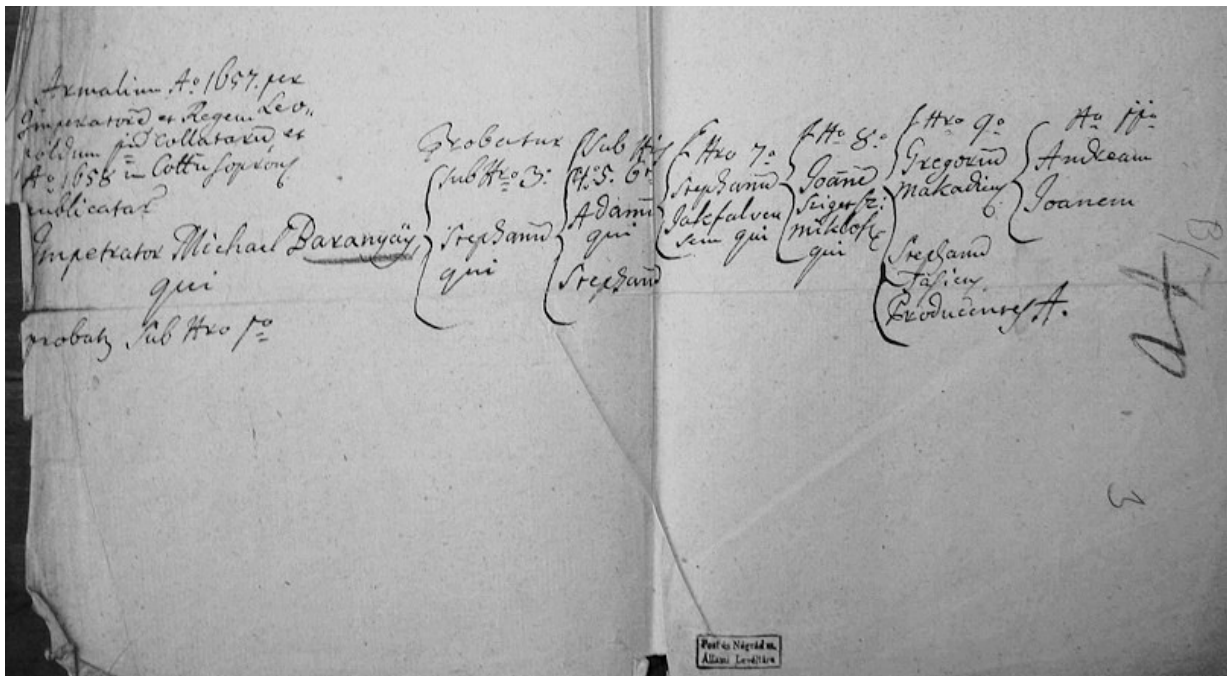 Armalium Aº 1657. per
Imperatorē et Regem Leo-
poldum Collatarū, et
Aº 1658 in Cottu Soprony
publicatar
Impetrator Michael Baranyäÿ
qui
probatʒ Sub Nro 1º
Probatur
Sub Nro 3:
Stephanū
qui
Sub Nris
5. 6º
Adamū
qui
Stephanū
Nro 7º
Stephanū
Jakfalven
sem qui
Nº 8º
Joānē
Sziget Sz:
Miklosy
qui
Nro 9º
Gregoriū
Makadiens
Stephanū
Fasiens
Producentes A.
Nº
Andream
Joanem
3
Pest és Nógrád m.
Állami Levéltára